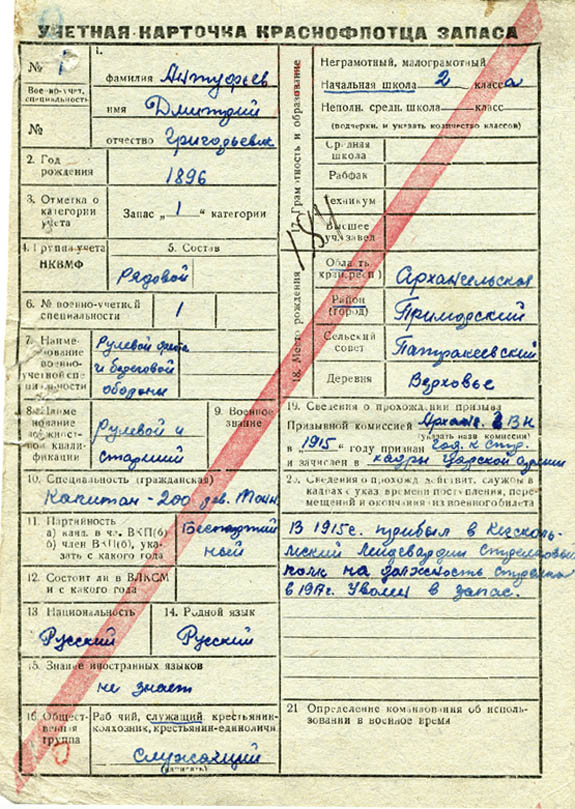 УЧЕТНАЯ КАРТОЧКА КРАСНОФЛОТЦА ЗАПАСА
№ 1
Военно-учет. специальность
№
1.
фамилия Антуфьев
имя Дмитрий
отчество Григорьевич
2. Год рождения 1896
3. Отметка о категории учета
Запас „1“ категории
4. Группа учета НКВМФ
5. Состав
Рядовой
6. № военно-учетной специальности 1
7. Наименование военно-учетной специальности
Рулевой флота
и береговой
обороны
8. Наименование должностной квалификации
Рулевой и
старший
9. Военное звание
10. Специальность (гражданская)
Капитан - 200
11. Партийность
а) канд. в чл. ВКП(б)
б) член ВКП(б), указать с какого года
Беспартийный
12. Состоит ли в ВЛКСМ и с какого года
13 Национальность
Русский
14. Родной язык
Русский
15. Знание иностранных языков
не знает
16. Общественная группа
Рабочий, служащий, крестьянин-
колхозник, крестьянин-единоличн.
служащий
17. Грамотность и образование
Неграмотный, малограмотный
Начальная школа 2 класса
Неполн. средн. школа класс
(подчеркн. и указать количество классов)
Средняя школа
Рабфак
Техникум
Высшее уч. завед.
18. Место рождения
Область (край, респ.) Архангельская
Район (город) Приморский
Сельский совет
Деревня Верховье
19. Сведения о прохождении призыва
Призывной комиссией
(указать назв. комиссии)
в „1915“ году признан
и зачислен в кадры царской армии
20. Сведения о прохожд. действит. службы в
кадрах с указ. времени поступления, перемещений и окончания из военного билета
В 1915 г. прибыл в Кексгольмский
полк на должность
в 1917 г. Уволен в запас.
21 Определение командования об использовании в военное время